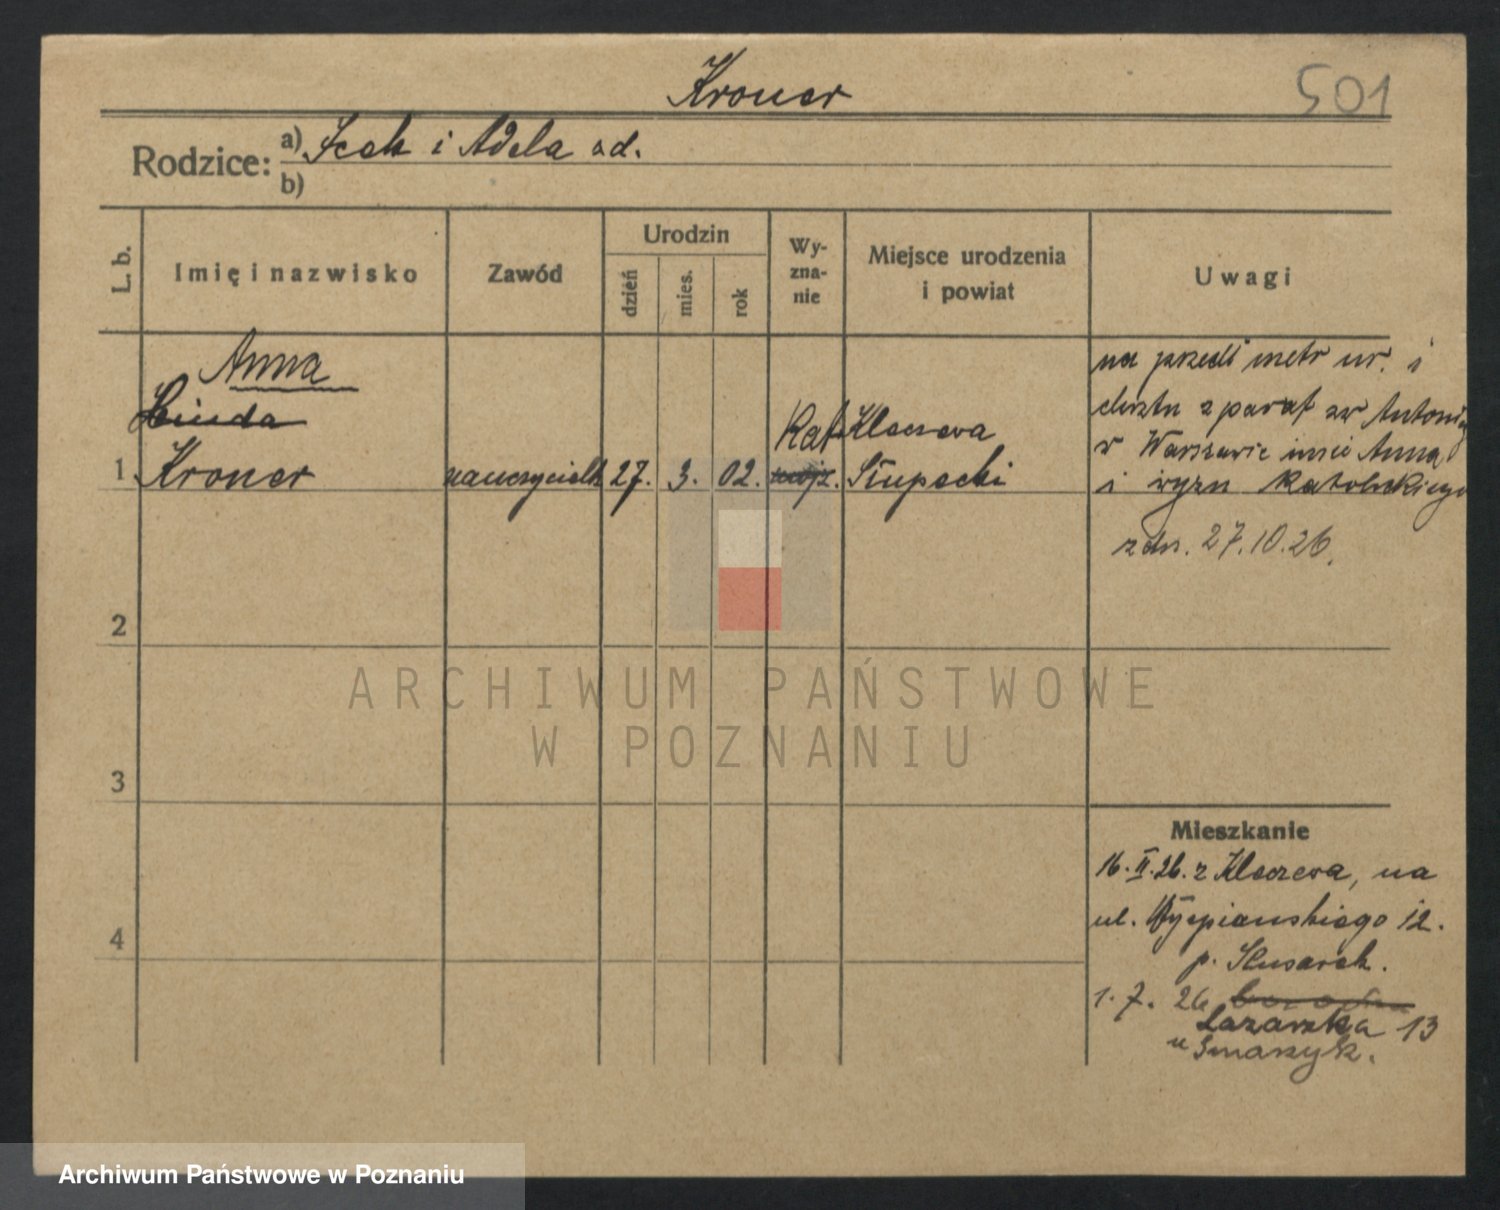 Kroner
501
Rodzice: a) Icek i Adela ad.
b)
L. b. Imię i nazwisko Zawód Urodzin dzień mies. rok Wy-zna-nie Miejsce urodzenia i powiat Uwagi
Anna
Linda
1. Kroner nauczycielk 27. 3. 02. Kat. mojż. Kleczewa Słupecki
na przedł metr ur. i
chrztu z paraf św Antoni
w Warszawie imię Anna
i wyzn katolickiego
zdn. 27.10.26.
2
3
4
Mieszkanie
16.II.26. z Kleczewa, na
ul. Wyspianskiego 12.
p. Slusarek.
1. 7. 26
Łazarska 13
u Smaszyk.
ARCHIWUM PAŃSTWOWE
W POZNANIU
Archiwum Państwowe w Poznaniu